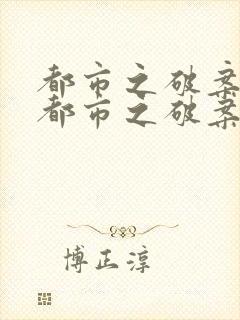 都市之破案
都市之破案
博正淳